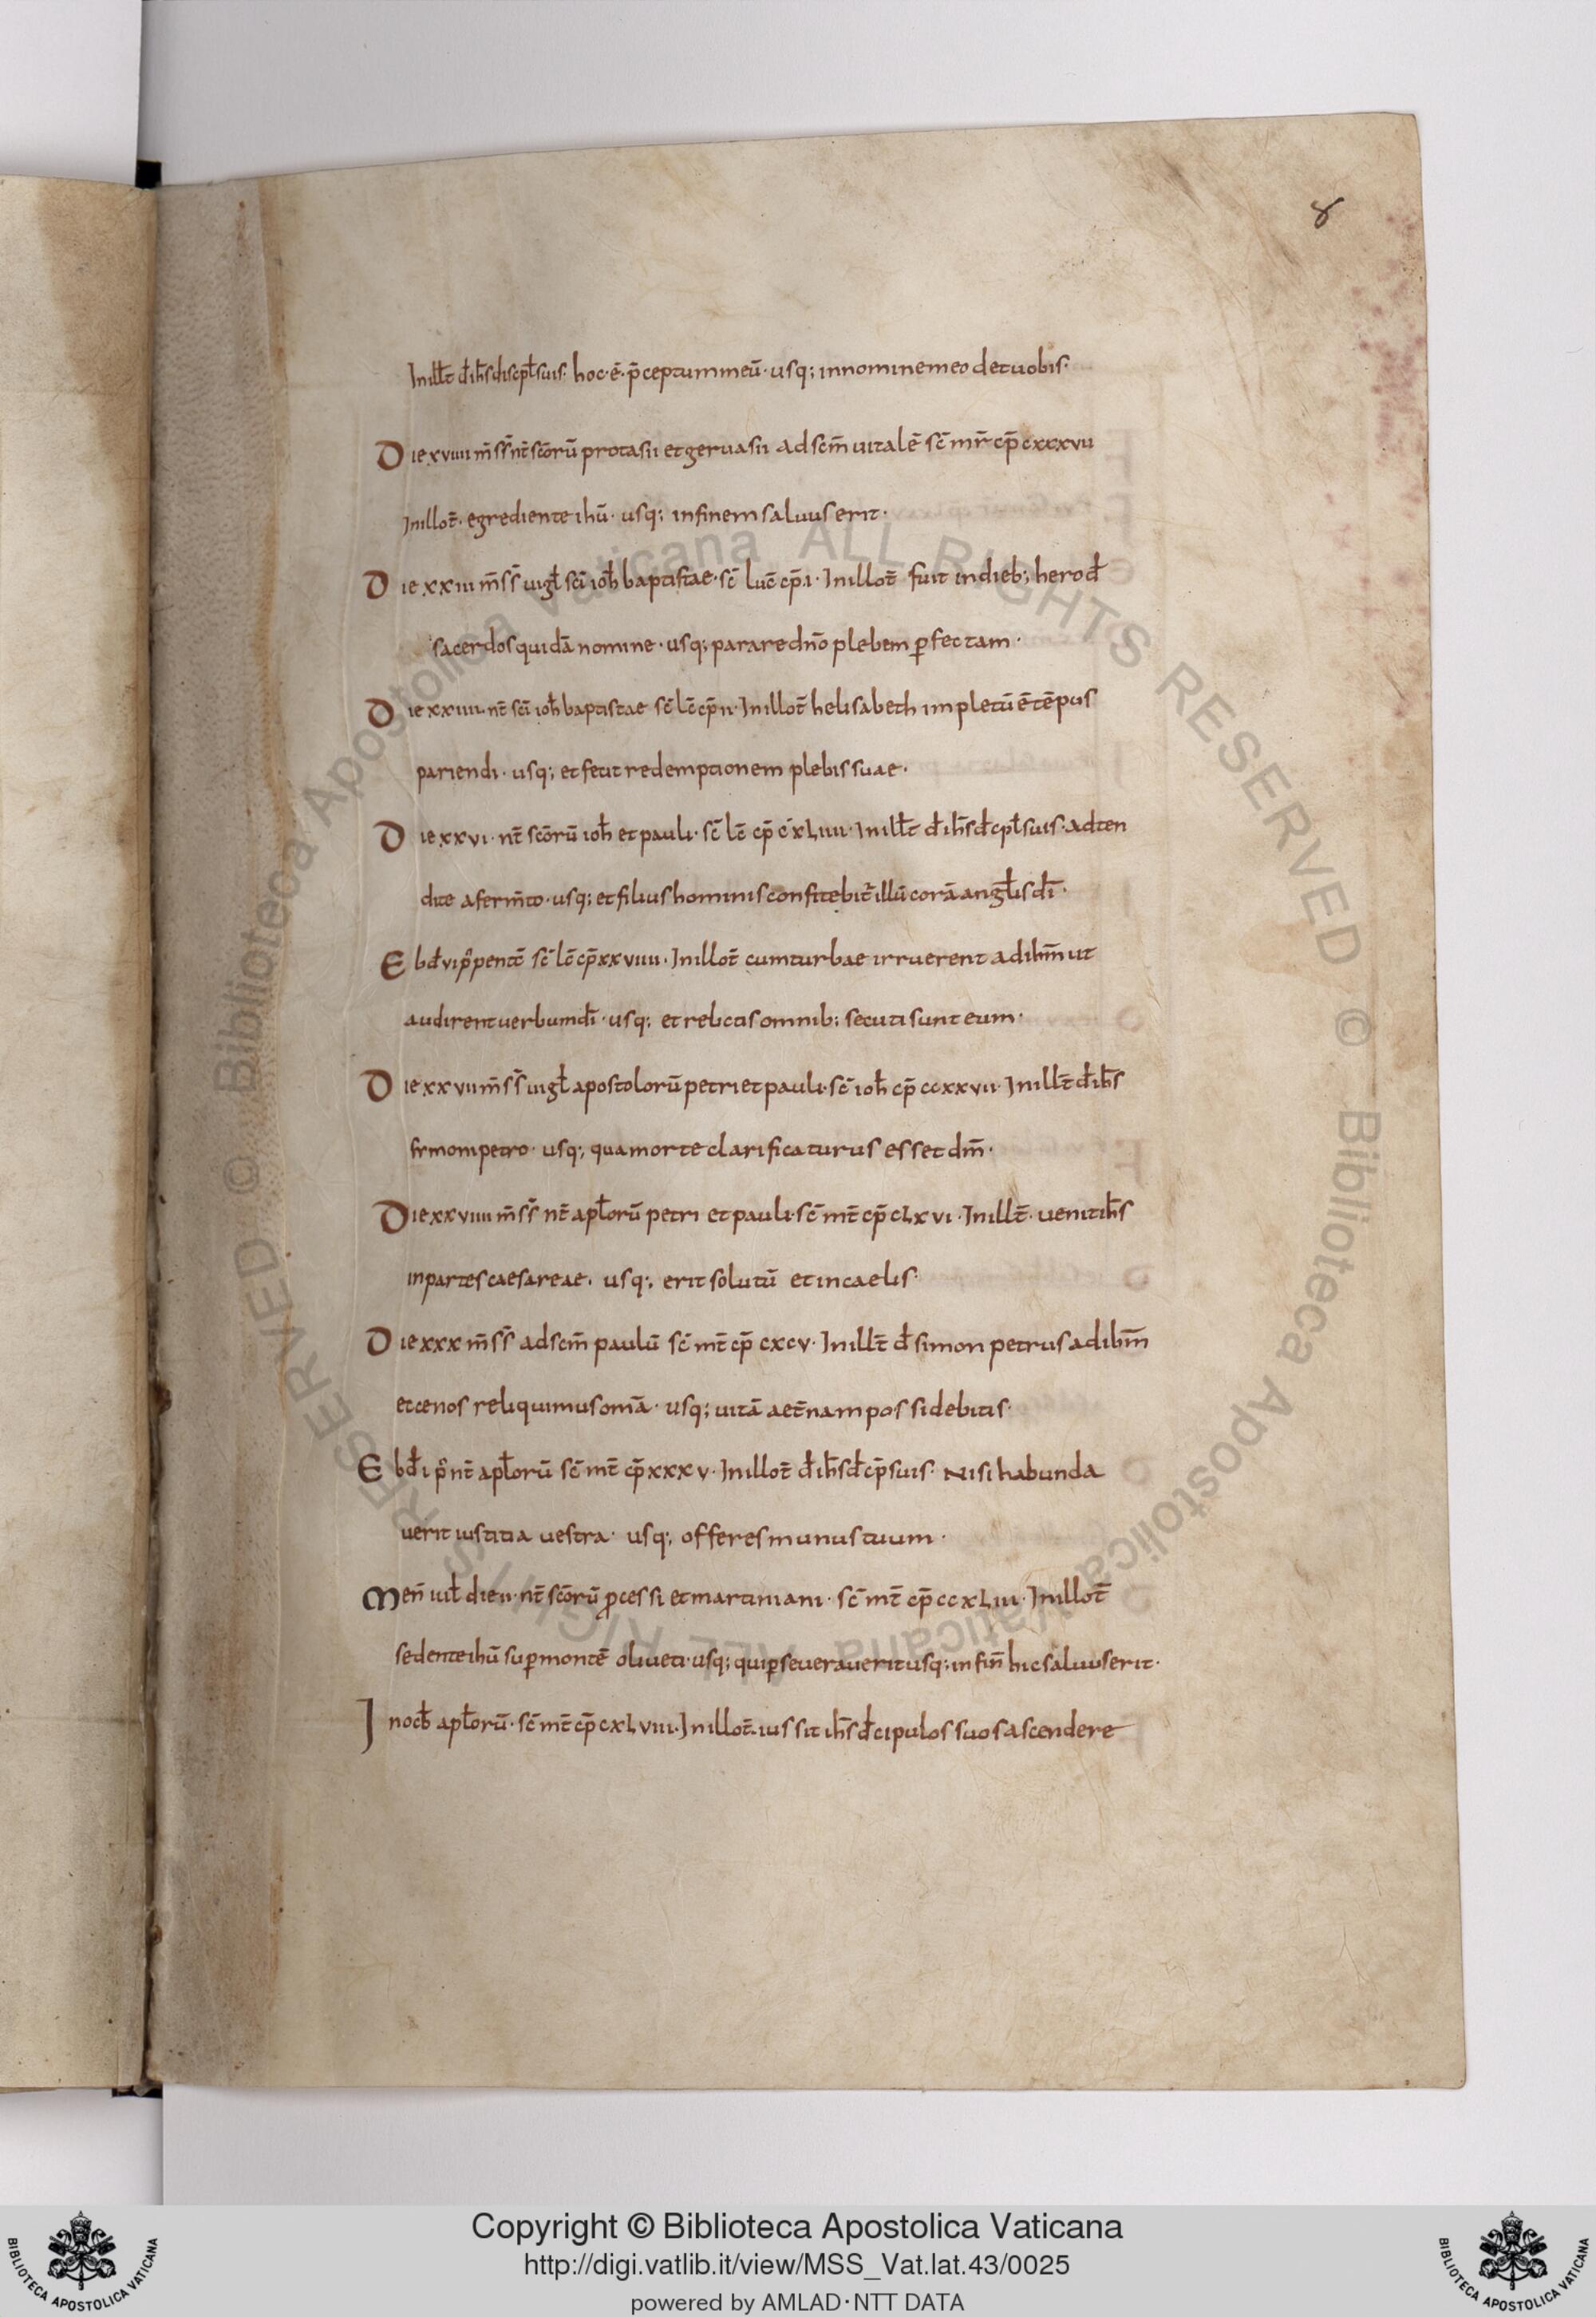 8
Inill̄t d̄ ih̄s discpl̄ suis· hoc·ē· p̄ceptum meū· usq; innomine meo det uobis·
Die xviiii m̄s s̄ nt̄ sc̄orū protasii et geruasii ad scm̄ uitalē sc̄ mr̄ cp̄ cxxxvii
Inillot̄· egrediente ihū· usq; infinem saluus erit·
Die xxiii m̄s s̄ uigl̄ sc̄i ioh̄ baptistae· sc̄ luc̄ cp̄·i· Inillot̄ fuit indieb; herod̄
sacerdos quidā nomine· usq; parare dn̄o plebem ꝑfectam·
Die xxiiii· nt̄ sc̄i ioh̄ baptistae sc̄ lc̄ cp̄ ii· Inillot̄ helisabeth impletū ē tēpus
pariendi· usq; et fecit redemptionem plebis suae·
Die xxvi· nt̄ sc̄orū ioh̄ et pauli· sc̄ lc̄ cp̄ cxLiiii· Inill̄t d̄ ih̄s d̄cpl̄ suis· adten
dite a ferm̄to· usq; et filius hominis confitebit̄ illū corā angl̄is dī·
Ebd̄ vi p̄ pentc̄ sc̄ lc̄ cp̄ xxviiii· Inillot̄ cum turbae irruerent ad ihm̄ ut
audirent uerbum dī· usq; et relictis omnib; secuti sunt eum·
Die xxvii m̄s s̄ uigl̄ apostolorū petri et pauli· sc̄ ioh̄ cp̄ ccxxvii· Inill̄t d̄ ih̄s
simoni petro· usq; qua morte clarificaturus esset dm̄·
Die xxviiii m̄s s̄ nt̄ apl̄orū petri et pauli· sc̄ mt̄ cp̄ cLxvi· Inill̄t· uenit ih̄s
in partes caesareae· usq; erit solutū et in caelis·
Die xxx m̄s s̄ ad scm̄ paulū sc̄ mt̄ cp̄ cxcv· Inill̄t d̄ simon petrus ad ihm̄
ecce nos reliquimus omā· usq; uitā aet̄nam possidebitis·
Ebd̄ i p̄ nt̄ apl̄orū sc̄ mt̄ cp̄ xxxv· Inillot̄ d̄ ih̄s d̄cp̄ suis· Nisi habunda
uerit iustitia uestra· usq; offeres munus tuum·
Men̄ iul̄ die ii· nt̄ sc̄orū ꝓcessi et martiniani· sc̄ mt̄ cp̄ ccxLiii· Inillot̄
sedente ihū suꝑ montē oliueti· usq; qui ꝑseuerauerit usq; in fin̄ hic saluus erit·
In octb̄ apl̄orū· sc̄ mt̄ cp̄ cxLviii· Inillot̄· iussit ih̄s d̄cipulos suos ascendere
Copyright © Biblioteca Apostolica Vaticana
http://digi.vatlib.it/view/MSS_Vat.lat.43/0025
powered by AMLAD·NTT DATA
BIBLIOTECA APOSTOLICA VATICANA
BIBLIOTECA APOSTOLICA VATICANA
© Biblioteca Apostolica Vaticana ALL RIGHTS RESERVED © Biblioteca Apostolica Vaticana ALL RIGHTS RESERVED